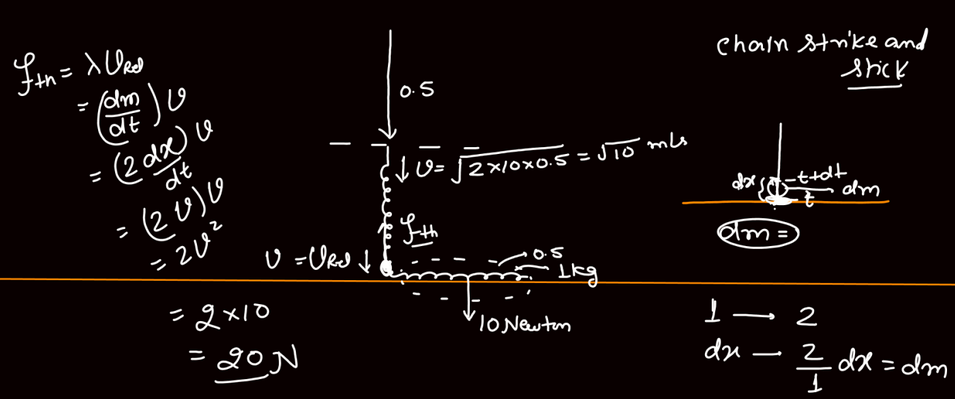 f_th = λ v_Rel
= (dm/dt) v
= (2 dx/dt) v
= (2v)v
= 2v²
= 2×10
= 20 N
0.5
v = √(2×10×0.5) = √10 m/s
f_th
v = v_Rel
0.5
1kg
10 Newton
chain strike and
stick
dx
t+dt
dm
t
dm =
1 → 2
dx — 2/1 dx = dm